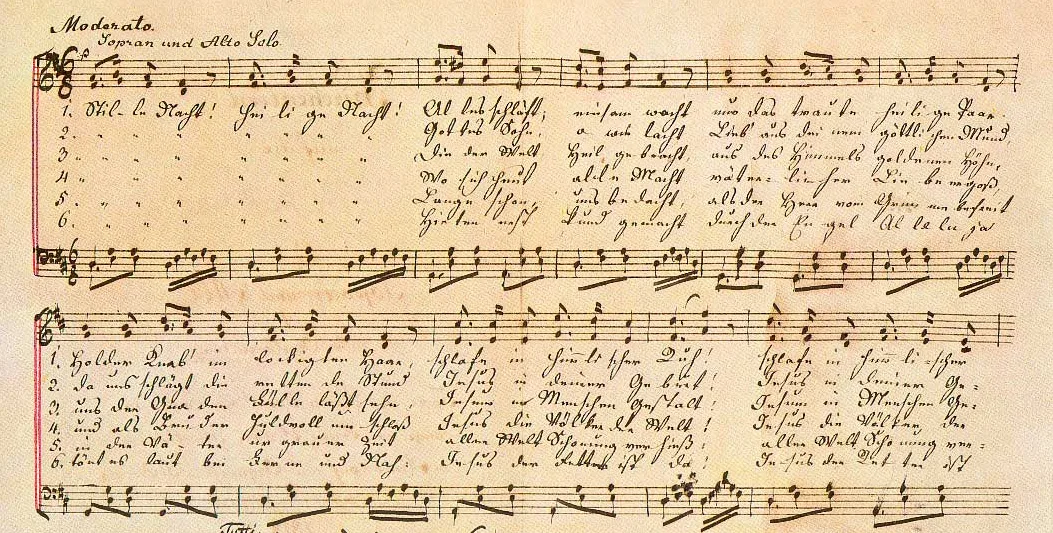 Moderato.
Sopran und Alto Solo
1. Stil-le Nacht! Hei li ge Nacht! Al les schläft; einsam wacht nur das traute heilige Paar.
2. " " " " " " Gottes Sohn, o wie lacht Lieb' aus dei nem göttlichen Mund,
3 " " " " " " Die der Welt Heil gebracht, aus des Himmels goldenen Höhn,
4 " " " " " " Wo sich heut alle Macht väter-li-cher Lie be ergoß,
5. " " " " " " Lange schon, uns bedacht, als der Herr vom Grim me befreit
6. " " " " " " Hirten erst kund gemacht durch der En gel Al le lu ja
1. Holder Knab' im lockigten Haar, schlafe in himlischer Ruh! schlafe in himli-scher
2. da uns schlägt die retten de Stund Jesus in deiner Geburt! Jesus in deiner Ge-
3. uns der Gna den Fülle läßt sehn, Jesum in Menschen Gestalt! Jesum in Menschen Ge-
4. und als Bruder Huldvoll um schloß Jesus die Völker der Welt! Jesus die Völker der
5. in der Vä-ter ur grauer Zeit aller Welt Schonung verhieß: aller Welt Schonung ver-
6. tönt es laut bei Ferne und Nah: Jesus der Retter ist da! Jesus der Ret ter ist
Tutti